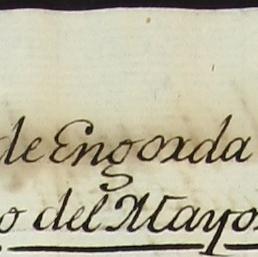 de Engorda
o del Mayor